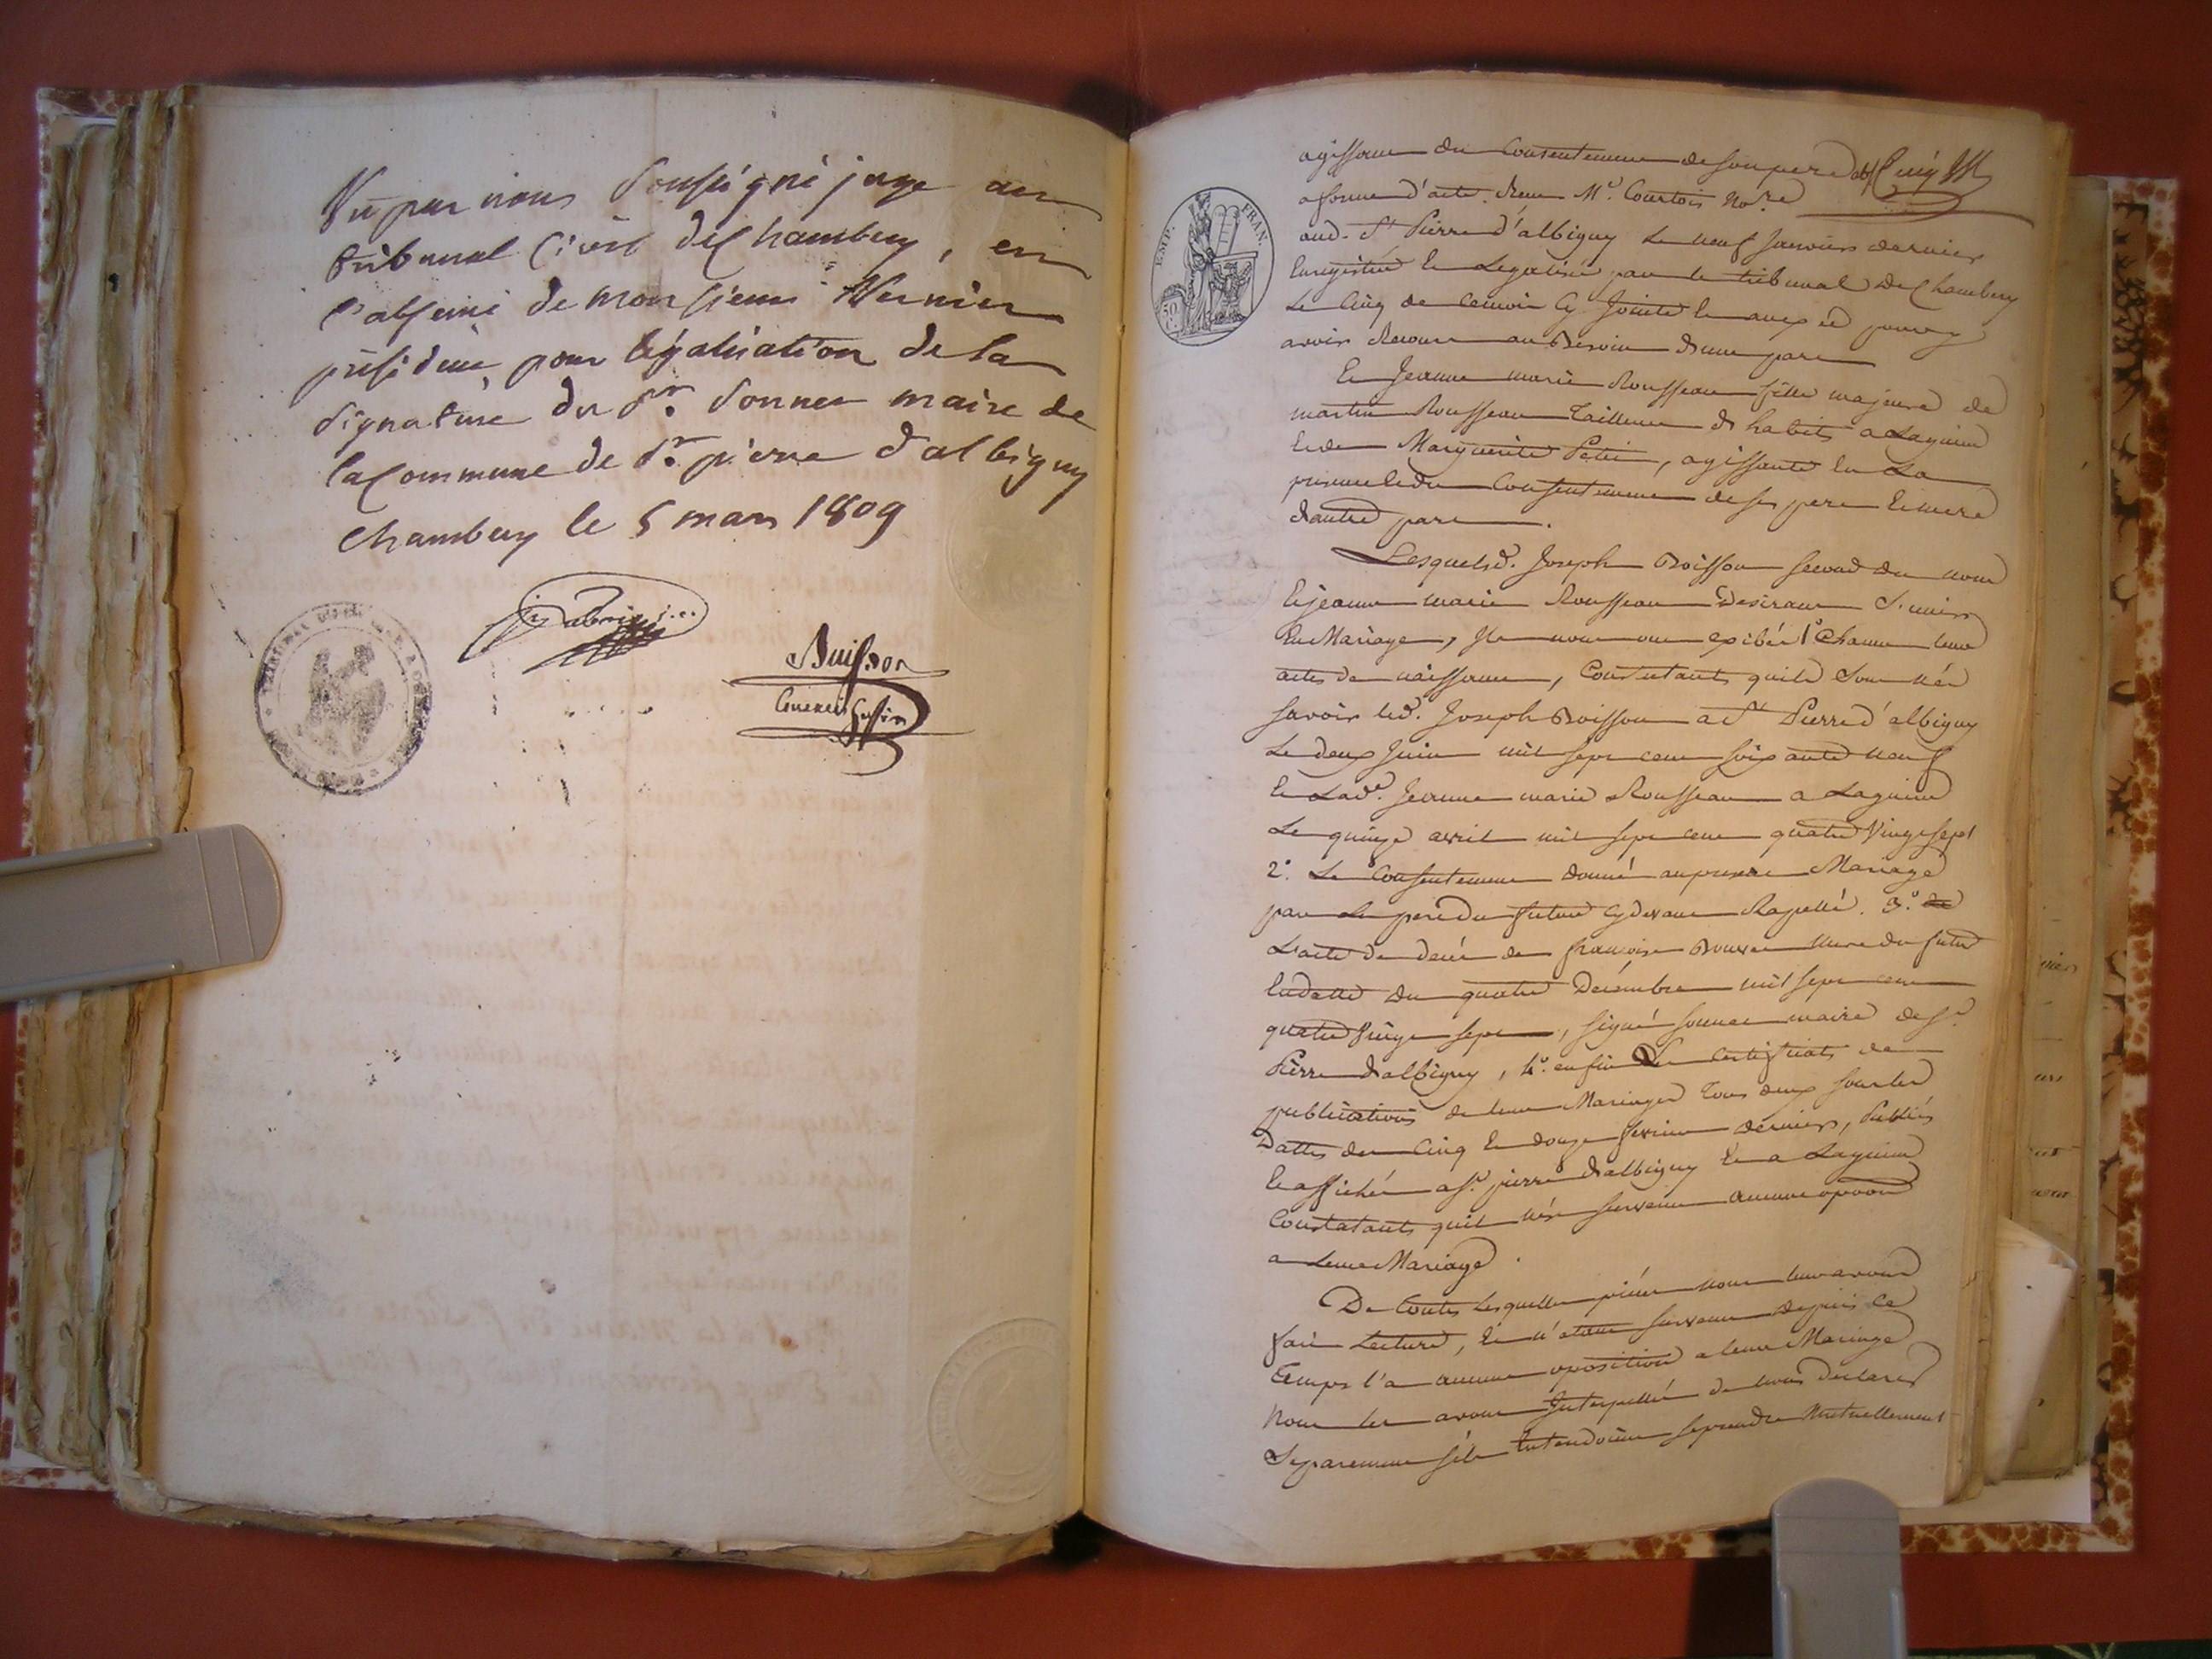 Vu par nous soussigné juge au
tribunal Civil de Chambery, en
l'absence de monsieur Vernier
président, pour légalisation de la
signature du Sr. Sonner maire de
la Commune de St. pierre d'albigny
Chambery le 5 mars 1809
Buisson
agissant du Consentement de son pere
a forme d'acte. Reçu Me. Courtois Nore
aud. St Pierre d'albigny Le neuf Janvier dernier
Enregistré et Legalisé par le tribunal de Chambery
Le Cinq de cemois Cy Jointe et annexée pour y
avoir Recours au Besoin d'une part
EMP. FRAN.
50 C.
Et Jeanne marie Rousseau fille majeure de
martin Rousseau Tailleur d'habits a Lagnieu
et de Marguerite Petit, agissante En La
presence et du Consentement de ses pere et mere
d'autre part.
Lesquels d. Joseph Boisson second du nom
et jeanne marie Rousseau Desirant S'unir
En Mariage, Ils nous ont exibés 1° Chacun leur
actes de naissance, Constatants quils sont nés
savoir led. Joseph Boisson a St Pierre d'albigny
Le deux Juin mil sept cent soixante neuf
et Lade. Jeanne marie Rousseau a Lagnieu
Le quinze avril mil sept cent quatre Vingt sept
2°. Le Consentement donné au present Mariage
par Le pere du futur cy devant Rapellé. 3°. de
L'acte de decés de francoise mere du futur
En datte du quatre Décembre mil sept cent
quatre Vingt sept, signé sonner maire de St.
Pierre d'albigny, 4°. enfin Les Certificats de
publications de leur Mariage Tous deux sous les
Dattes des Cinq et douze fevrier derniers, Publiés
et affichés a St. pierre d'albigny et a Lagnieu
Constatants quil n'est survenu aucune opoon
a Leur Mariage.
De toutes Lesquelles pièces nous leur avons
fait Lecture, et n'etant survenu depuis ce
Temps la aucune oposition a leur Mariage
Nous les avons Interpellés de nous declarer
Separement s'ils Entendoient se prendre Mutuellement